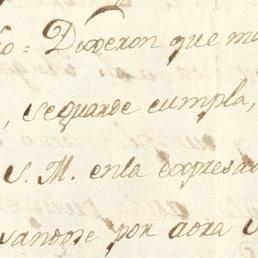 ño = Dixeron que ma
, seguarde cumpla,
S. M. enla expresa
vandose por aora